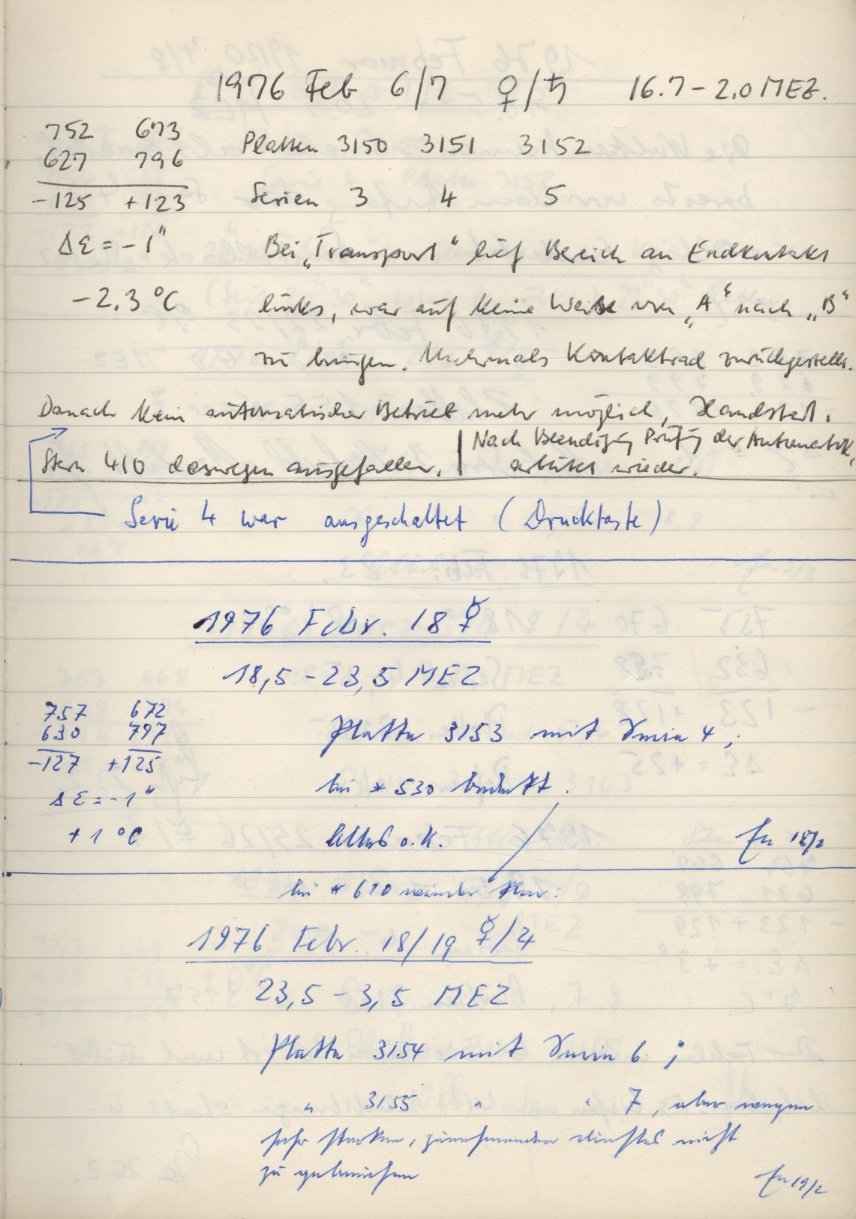 1976 Feb 6/7 ♀/♄ 16.7 – 2.0 MEZ.
752 673
627 796
-125 +123
Δε = -1"
-2,3 °C
Platten 3150 3151 3152
Serien 3 4 5
Bei „Transport" lief Bereich an Endkontakt
links, war auf keine Weise von „A" nach „B"
zu bringen. Mehrmals Kontaktrad zurückgestellt.
Danach kein automatischer Betrieb mehr möglich, Handstart.
Stern 410 deswegen ausgefallen.
Nach Beendigg Prüfg der Automatik,
arbeitet wieder.
Serie 4 war ausgeschaltet (Drucktaste)
1976 Febr. 18 ☿
18,5 – 23,5 MEZ
757 672
630 797
-127 +125
Δε = -1"
+1 °C
Platte 3153 mit Serie 4;
bis * 530
Alles o.K.
18/2
bis * 610 wieder klar.
1976 Febr. 18/19 ☿/♃
23,5 – 3,5 MEZ
Platte 3154 mit Serie 6;
" 3155 " " 7, aber wegen
sehr starken, zunehmenden Dunstes nicht
zu gebrauchen
19/2